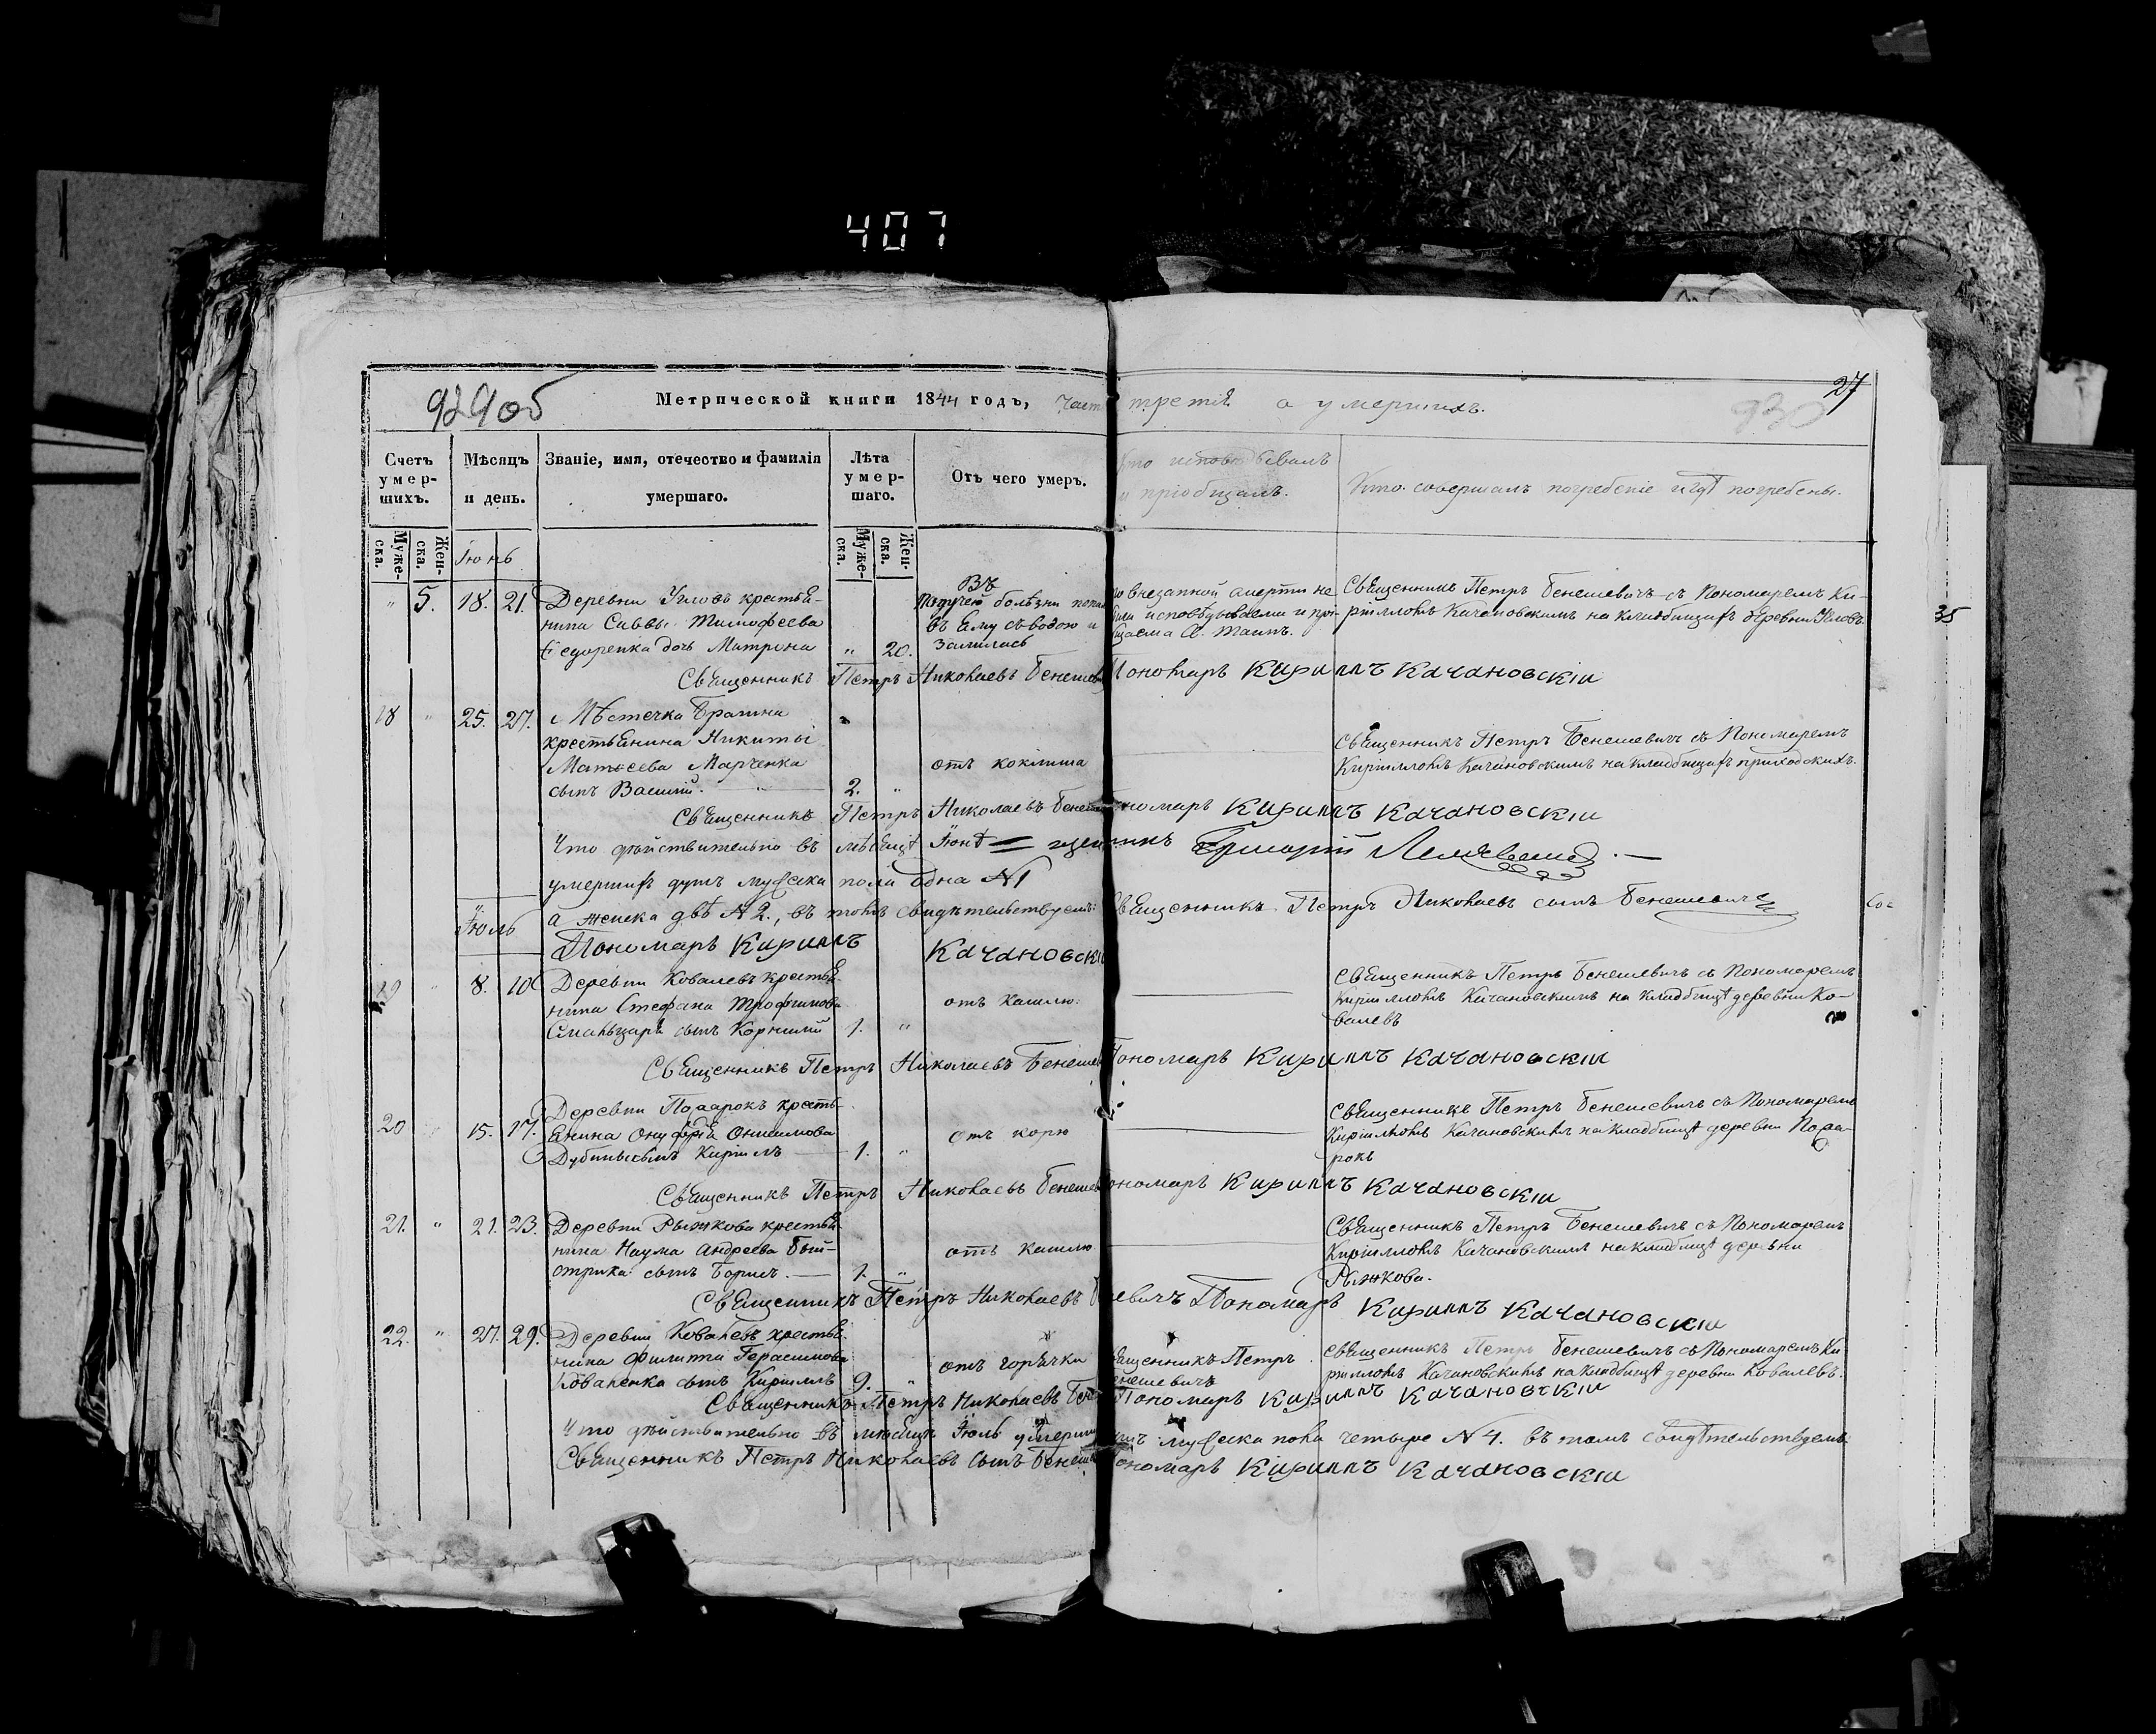 407
929об
Метрической книги 1844 годъ, часть третія о умершихъ.
27
930
Счетъ умер-шихъ.
Мѣсяцъ и день.
Званіе, имя, отечество и фамилія умершаго.
Лѣта умер-шаго.
Отъ чего умеръ.
Кто исповѣдывалъ и пріобщалъ.
Кто совершалъ погребеніе и гдѣ погребены.
Муже-ска.
Жен-ска.
Муже-ска.
Жен-ска.
Іюнь
" 5. 18. 21. Деревни Угловъ крестья-
нина Саввы Тимофеева
Федоренка дочь Матрона " 20.
Въ
падучей болѣзни
въ яму съ водою и
залилась
по внезапной смерти не
исповѣдываема и прі-
общаема С. Таинъ.
Священникъ Петръ Бенешевичъ съ Пономаремъ Ки-
рилломъ Качановскимъ на кладбищѣ деревни Угловъ.
35
Священникъ Петръ Николаевъ Бенешев Пономарь Кириллъ Качановскій
18 " 25. 27. Мѣстечка Брагина
крестьянина Никиты
Матвеева Марченка
сынъ Василій. 2. "
отъ коклюша
Священникъ Петръ Бенешевичъ съ Пономаремъ
Кирилломъ Качановскимъ на кладбищѣ приходскихъ.
Священникъ Петръ Николаевъ Бенеш Пономарь Кириллъ Качановскій
Что дѣйствительно въ мѣсяцѣ Іюнѣ
умершихъ душъ мужска пола одна №1
а женска двѣ №2., въ томъ свидѣтельствуемъ: Священникъ Петръ Николаевъ сынъ Бенешевичъ
Іюль
Пономарь Кириллъ Качановскій
19 " 8. 10 Деревни Ковалевъ крестья-
нина Стефана Трофимова
сынъ Корнилій 1. "
отъ кашлю.
Священникъ Петръ Бенешевичъ съ Пономаремъ
Кирилломъ Качановскимъ на кладбищѣ деревни Ко-
валевъ
Священникъ Петръ Николаевъ Бенешев Пономарь Кириллъ Качановскій
20 " 15. 17. Деревни крестья-
янина Онуфрія Онисимова
сынъ Кириллъ 1. "
отъ корю
Священникъ Петръ Бенешевичъ съ Пономаремъ
Кирилломъ Качановскимъ на кладбищѣ деревни
Священникъ Петръ Николаевъ Бенешев Пономарь Кириллъ Качановскій
21. " 21. 23. Деревни Рыжкова крестья-
нина Наума Андреева Бый-
стрика сынъ Борисъ. 1. "
отъ кашлю
Священникъ Петръ Бенешевичъ съ Пономаремъ
Кирилломъ Качановскимъ на кладбищѣ деревни
Рыжкова.
Священникъ Петръ Николаевъ Бенешевичъ Пономарь Кириллъ Качановскій
22. " 27. 29. Деревни Ковалевъ крестья-
нина Филиппа Герасимова
Коваленка сынъ Кириллъ 9. "
отъ горячки
Священникъ Петръ
Бенешевичъ
Священникъ Петръ Бенешевичъ съ Пономаремъ Ки
рилломъ Качановскимъ на кладбищѣ деревни Ковалевъ.
Священникъ Петръ Николаевъ Бенеш Пономарь Кириллъ Качановскій
Что дѣйствительно въ мѣсяцѣ Іюль умерши душъ мужска пола четыре №4. въ томъ свидѣтельствуемъ
Священникъ Петръ Николаевъ сынъ Бенеш Пономарь Кириллъ Качановскій